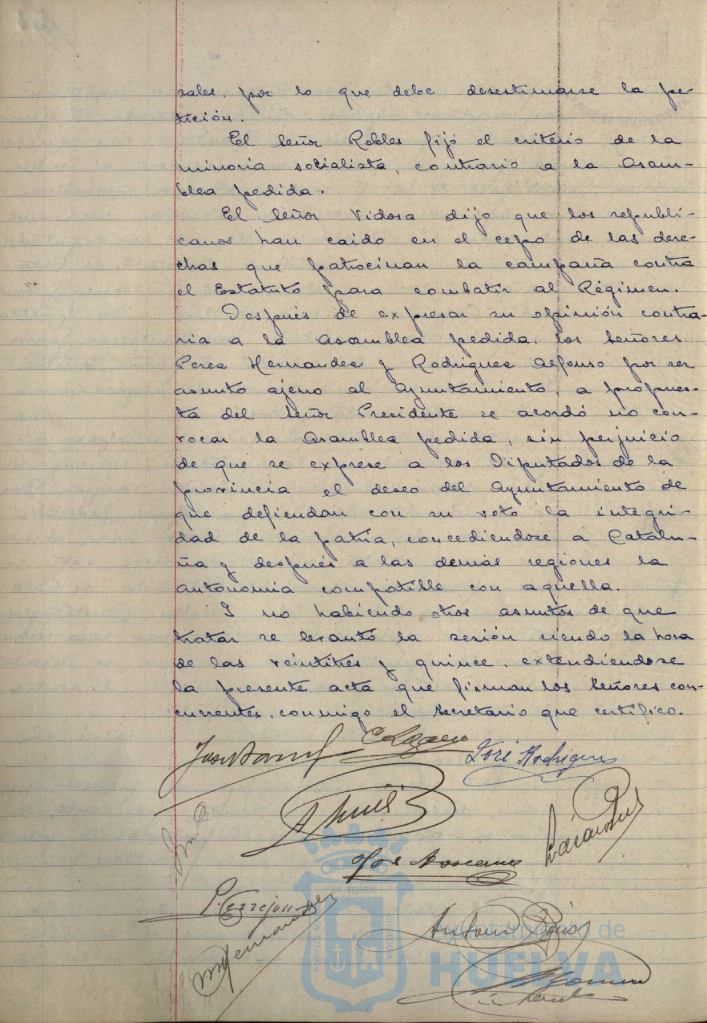 sales, por lo que debe desestimarse la pe-
tición.
El Señor Robles fijó el criterio de la
minoria socialista, contrario a la Asam-
blea pedida.
El Señor Vidosa dijo que los republi-
canos han caido en el cepo de las dere-
chas que patrocinan la campaña contra
el Estatuto para combatir al Régimen.
Después de expresar su opinión contra-
ria a la Asamblea pedida, los Señores
Perez Hernandez y Rodriguez Alfonso por ser
asunto ajeno al Ayuntamiento, a propues-
ta del Señor Presidente se acordó no con-
vocar la Asamblea pedida, sin perjuicio
de que se exprese a los Diputados de la
provincia el deseo del Ayuntamiento de
que defiendan con su voto la integri-
dad de la patria, concediendose a Catalu-
ña y después a las demás regiones la
autonomia compatible con aquella.
I no habiendo otros asuntos de que
tratar se levantó la sesión siendo la hora
de las veintitres y quince, extendiendose
la presente acta que firman los Señores con-
currentes, conmigo el Secretario que certifico.
José Rodriguez
Ayuntamiento de
HUELVA